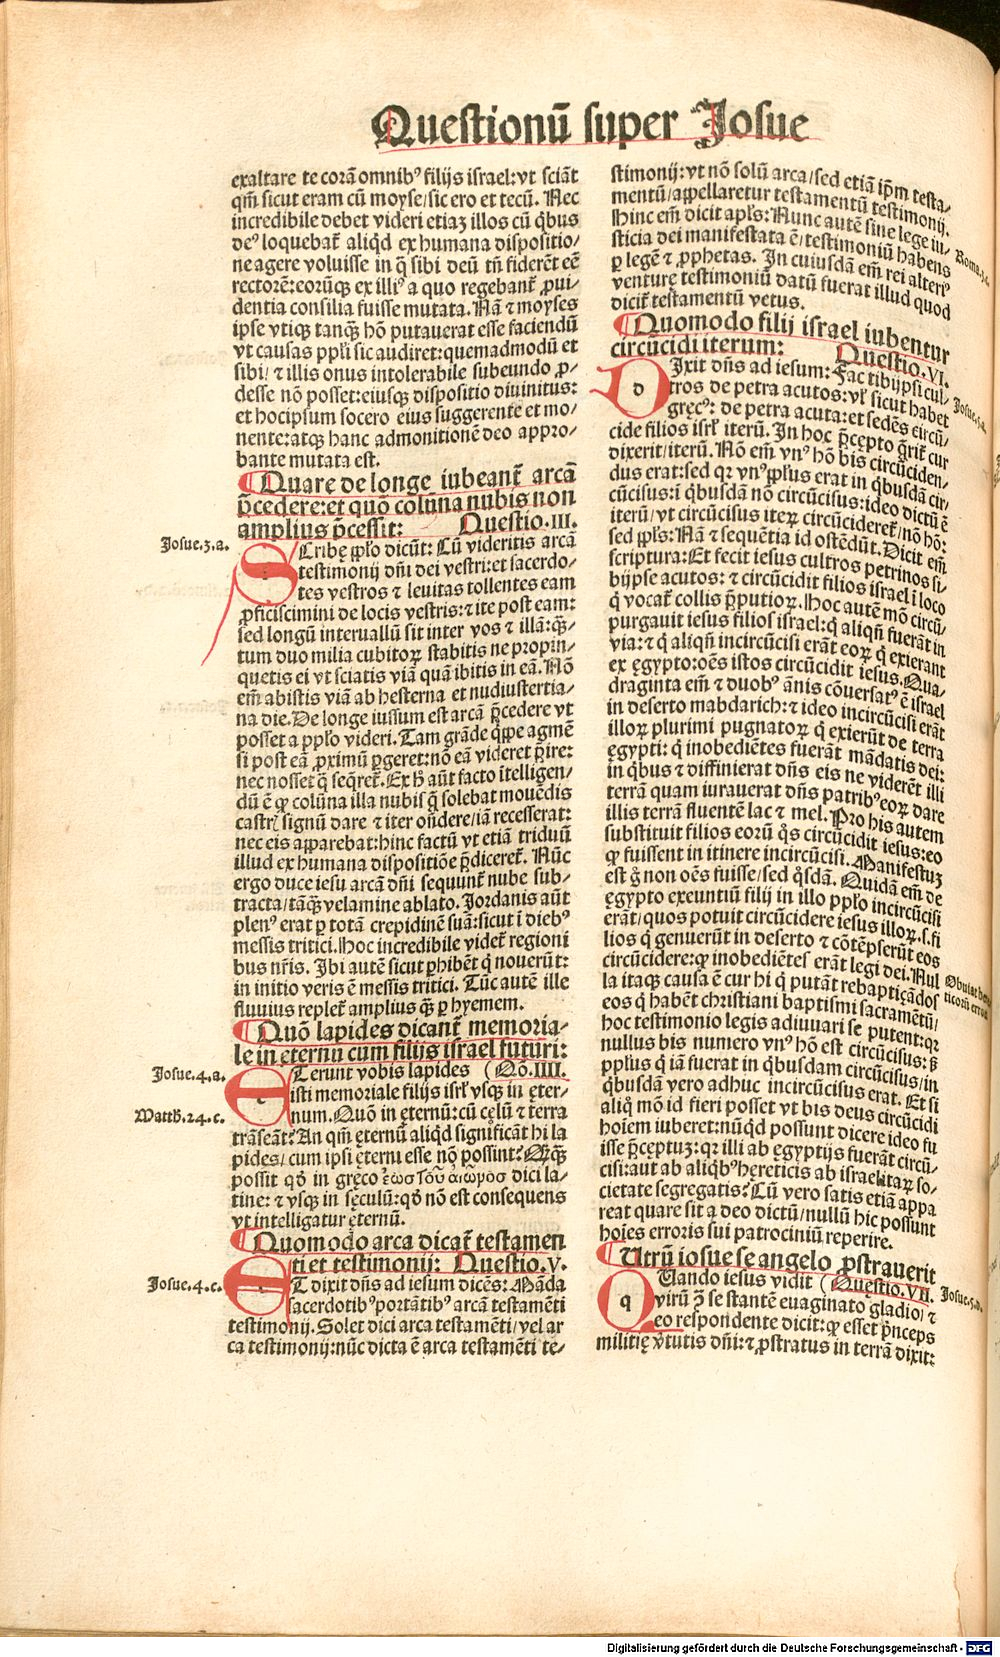 Questionū super Josue
exaltare te corā omnibꝰ filijs israel: vt sciāt
qm̄ sicut eram cū moyse/sic ero et tecū. Nec
incredibile debet videri etiaz illos cū q̄bus
deꝰ loquebat̄ aliqd̄ ex humana dispositio/
ne agere voluisse in q̄ sibi deū tn̄ fiderēt eē
rectorē: eorūqꝫ ex illiꝰ a quo regebant̄ ꝓui/
dentia consilia fuisse mutata. Nā ⁊ moyses
ipse vtiqꝫ tanqꝫ hō putauerat esse faciendū
vt causas ppl̓i sic audiret: quemadmodū et
sibi/ ⁊ illis onus intolerabile subeundo ꝓ/
desse nō posset: eiusqꝫ dispositio diuinitus:
et hocipsum socero eius suggerente et mo/
nente: atqꝫ hanc admonitionē deo appro/
bante mutata est.
¶ Quare de longe iubeant̄ arcā
p̄cedere: et quō colūna nubis non
amplius p̄cessit: Questio.III.
Josue.3.a.
SCribę ppl̓o dicūt: Cū videritis arcā
testimonij dn̄i dei vestri: et sacerdo/
tes vestros ⁊ leuitas tollentes eam
ꝓficiscimini de locis vestris: ⁊ ite post eam:
sed longū interuallū sit inter vos ⁊ illā: qꝫ/
tum duo milia cubitoꝝ stabitis ne propin/
quetis ei vt sciatis viā quā ibitis in eā. Nō
em̄ abistis viā ab hesterna et nudiustertia/
na die. De longe iussum est arcā p̄cedere vt
posset a ppl̓o videri. Tam grāde q̄ppe agmē
si post eā ꝓximū ꝑgeret: nō eā videret p̄ire:
nec nosset q̄ seq̄ret̄. Ex h̄ aūt facto ītelligen/
dū ē ꝙ colūna illa nubis q̄ solebat mouēdis
castrꝭ signū dare ⁊ iter on̄dere/iā recesserat:
nec eis apparebat: hinc factū vt etiā triduū
illud ex humana dispositiōe p̄diceret̄. Nūc
ergo duce iesu arcā dn̄i sequunt̄ nube sub/
tracta/tāqꝫ velamine ablato. Jordanis aūt
plenꝰ erat ꝑ totā crepidinē suā: sicut ī diebꝰ
messis tritici. Hoc incredibile videt̄ regioni
bus nr̄is. Ibi autē sicut ꝑhibēt q̄ nouerūt:
in initio veris ē messis tritici. Tūc autē ille
fluuius replet̄ amplius qꝫ ꝑ hyemem.
¶ Quō lapides dicant̄ memoria-
le in ęternū cum filijs israel futuri:
Josue.4.a.
ETerunt vobis lapides (Qō.IIII.
isti memoriale filijs isrl̓ vsqꝫ in ęter/
Matth.24.c.
num. Quō in ęternū: cū cęlū ⁊ terra
trāseāt? An qm̄ ęternū aliqd̄ significāt hi la
pides/cum ipsi ęterni esse nō possint? Qꝫqꝫ
possit qd̄ in gręco ἕωσ τοῦ αἰωροσ dici la-
tine: ⁊ vsqꝫ in sęculū: qd̄ nō est consequens
vt intelligatur ęternū.
¶ Quomodo arca dicat̄ testamen
ti et testimonij: Questio.V.
Josue.4.c.
ET dixit dn̄s ad iesum dicēs: Māda
sacerdotibꝰ portātibꝰ arcā testamēti
testimonij. Solet dici arca testamēti/vel ar
ca testimonij: nūc dicta ē arca testamēti te/
stimonij: vt nō solū arca/sed etiā ip̄m testa-
mentū/appellaretur testamentū testimonij.
Hinc em̄ dicit apl̓s: Nunc autē sine lege iu/
sticia dei manifestata ē/testimoniū habens
Roma.3.c.
ꝑ legē ⁊ ꝓphetas. In cuiusdā em̄ rei alteriꝰ
venturę testimoniū datū fuerat illud quod
dicit̄ testamentū vetus.
¶ Quomodo filij israel iubentur
circūcidi iterum: Questio.VI.
DIxit dn̄s ad iesum: Fac tibijpsi cul/
Josue.5.a.
tros de petra acutos: vl̓ sicut habet
gręcꝰ: de petra acuta: et sedēs circū/
cide filios isrl̓ iterū. In hoc p̄cepto q̄rit̄ cur
dixerit/iterū. Nō em̄ vnꝰ hō bis circūciden/
dus erat: sed qꝛ vnꝰ ppl̓us erat in q̄busdā cir/
cūcisus: ī q̄busdā nō circūcisus: ideo dictū ē
iterū/vt circūcisus iteꝝ circūcideret̄/nō hō:
sed ppl̓s: Nā ⁊ sequētia id ostēdūt. Dicit em̄
scriptura: Et fecit iesus cultros petrinos si/
bijpse acutos: ⁊ circūcidit filios israel ī loco
q̄ vocat̄ collis p̄putioꝝ. Hoc autē mō circū/
purgauit iesus filios israel: q̄ aliqn̄ fuerāt in
via: ⁊ q̄ aliqn̄ incircūcisi erāt eoꝝ q̄ exierant
ex ęgypto: oēs istos circūcidit iesus. Qua/
draginta em̄ ⁊ duobꝰ ānis cōuersatꝰ ē israel
in deserto mabdarich: ⁊ ideo incircūcisi erāt
illoꝝ plurimi pugnatoꝝ q̄ exierūt de terra
ęgypti: q̄ inobediētes fuerāt mādatis dei:
in q̄bus ⁊ diffinierat dn̄s eis ne viderēt illi
terrā quam iurauerat dn̄s patribꝰ eoꝝ dare
illis terrā fluentē lac ⁊ mel. Pro his autem
substituit filios eorū q̄s circūcidit iesus: eo
ꝙ fuissent in itinere incircūcisi. Manifestuz
est g̊ non oēs fuisse/sed q̄sdā. Quidā em̄ de
ęgypto exeuntiū filij in illo ppl̓o incircūcisi
erāt/quos potuit circūcidere iesus illoꝝ.s.fi
lios q̄ genuerūt in deserto ⁊ cōtēpserūt eos
circūcidere: ꝙ inobediētes erāt legi dei. Nul
la itaqꝫ causa ē cur hi q̄ putāt rebaptiçādos
eos q̄ habēt christiani baptismi sacramētū/
hoc testimonio legis adiuuari se putent: qꝛ
nullus bis numero vnꝰ hō est circūcisus: s̄
pplus q̄ iā fuerat in q̄busdam circūcisus/in
q̄busdā vero adhuc incircūcisus erat. Et si
aliq̄ mō id fieri posset vt bis deus circūcidi
hoiem iuberet: nūqd̄ possunt dicere ideo fu
isse p̄ceptuꝫ: qꝛ illi ab ęgyptijs fuerāt circū/
cisi: aut ab aliq̄bꝰ hęreticis ab israelitaꝝ so/
cietate segregatis? Cū vero satis etiā appa
reat quare sit a deo dictū/nullū hic possunt
hoies erroris sui patrociniū reperire.
¶ Utrū iosue se angelo ꝓstrauerit
QUando iesus vidit (Quęstio.VII.
Josue.5.d.
virū ꝯ̄ se stantē euaginato gladio/ ⁊
eo respondente dicit: ꝙ esset p̄nceps
militię v̓tutis dn̄i: ⁊ ꝓstratus in terrā dixit:
Digitalisierung gefördert durch die Deutsche Forschungsgemeinschaft - DFG